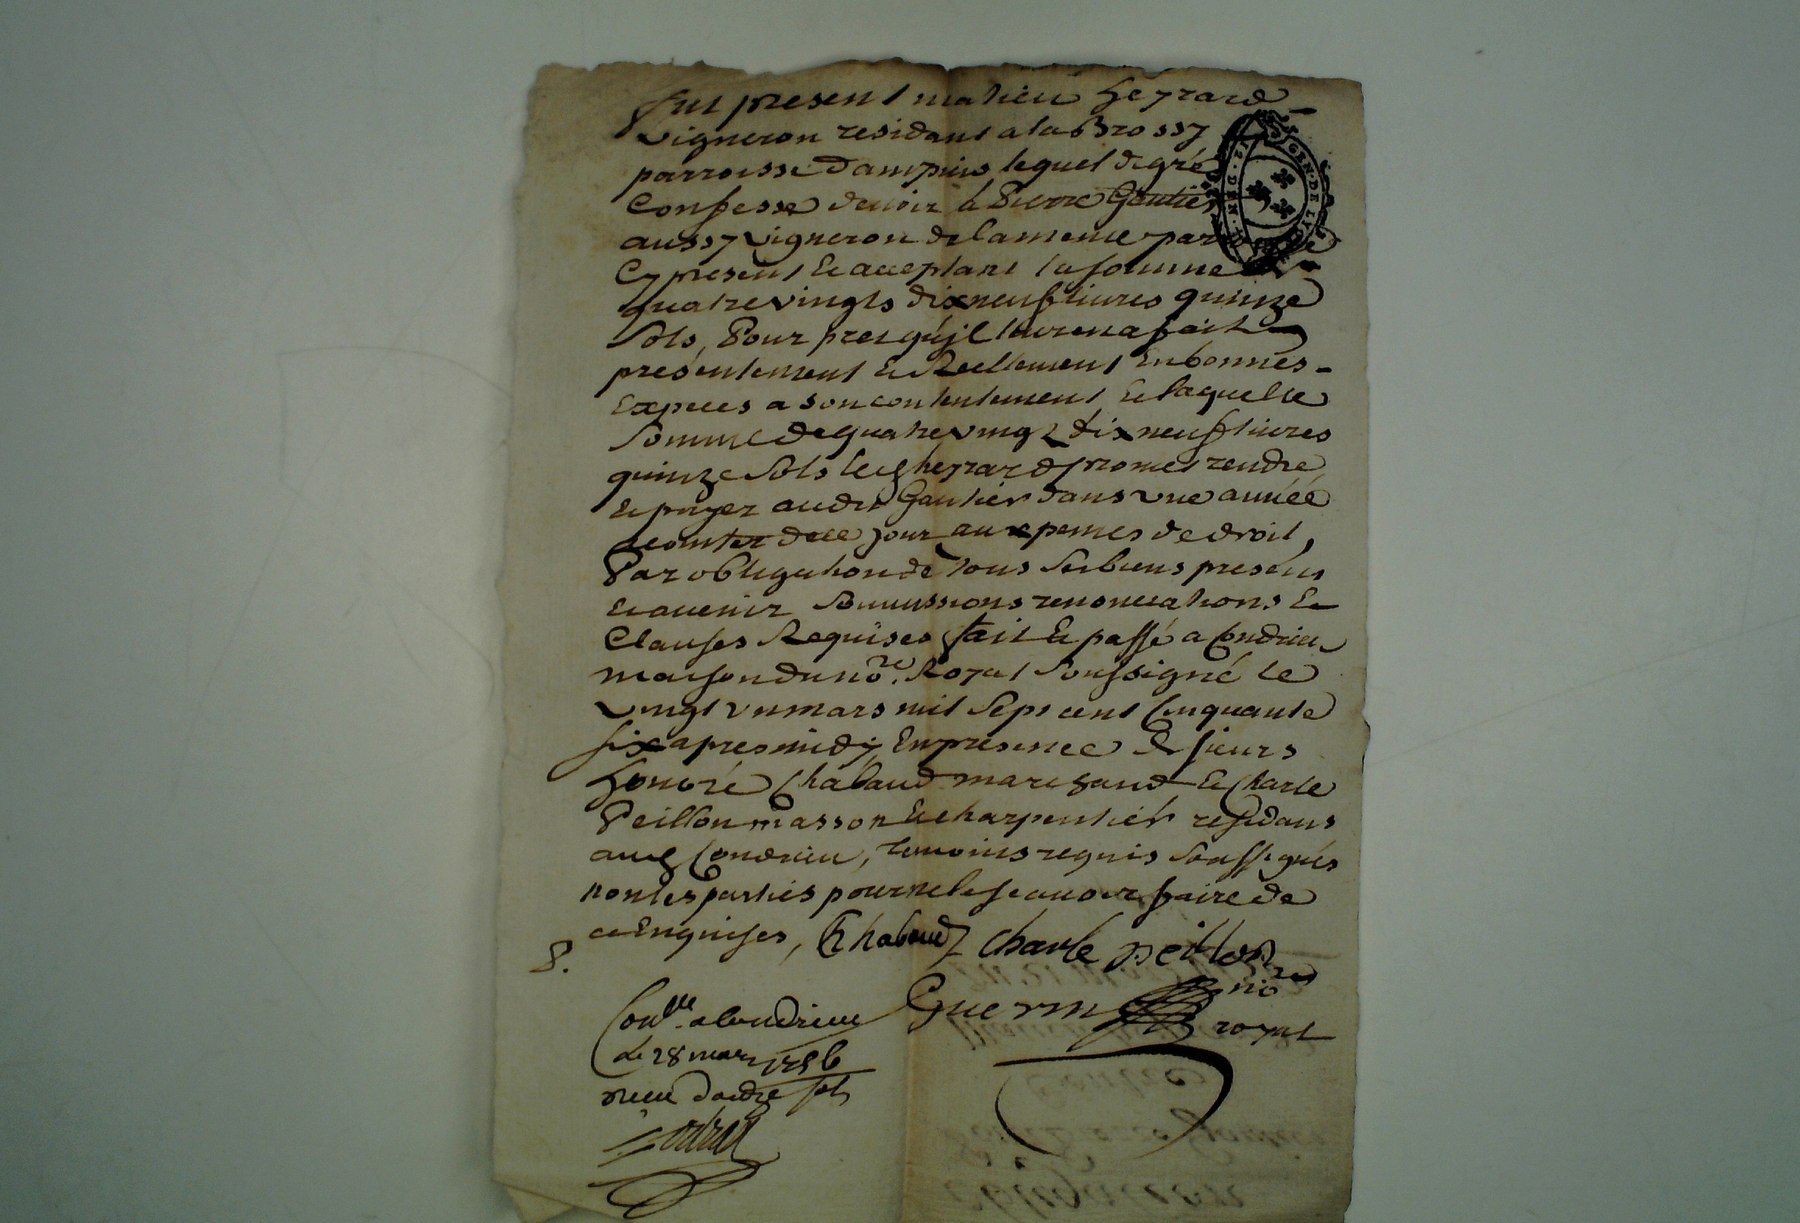 fut present mathieu heyrard
vigneron residant a la Brossy
parroisse dampuis lequel de gré
Confesse devoir à Pierre Gautier
aussy vigneron de la meme parroisse
Cy present & acceptant la somme de
quatre vingts dix neuf livres quinze
sols, Pour prest qu'jl luy en a fait
présentement & Reellement En bonnes
Expeces a son contentement & laquelle
somme de quatre vingt dix neuf livres
quinze sols led heyrard promet rendre
& payer audit Gautier dans une année
a comter de ce jour aux peines de droit,
Par obligation de tous ses biens presens
& avenir soumissions renonciations &
Clauses Requises fait & passé a Condrieu
maison du nore. Royal soussigné le
vingt un mars mil sept cent Cinquante
six apres midy En presence de sieurs
honoré Chabaud marchand & Charle
Peillon masson & charpentier residans
aud Condrieu, temoins requis soussignés
non les parties pour ne le sçavoir faire de
ce Enquises, Chabaud charle peillon
Guerin nore
royal
Conlle. a Condrieu
le 28 mars 1756
reçu douze sols